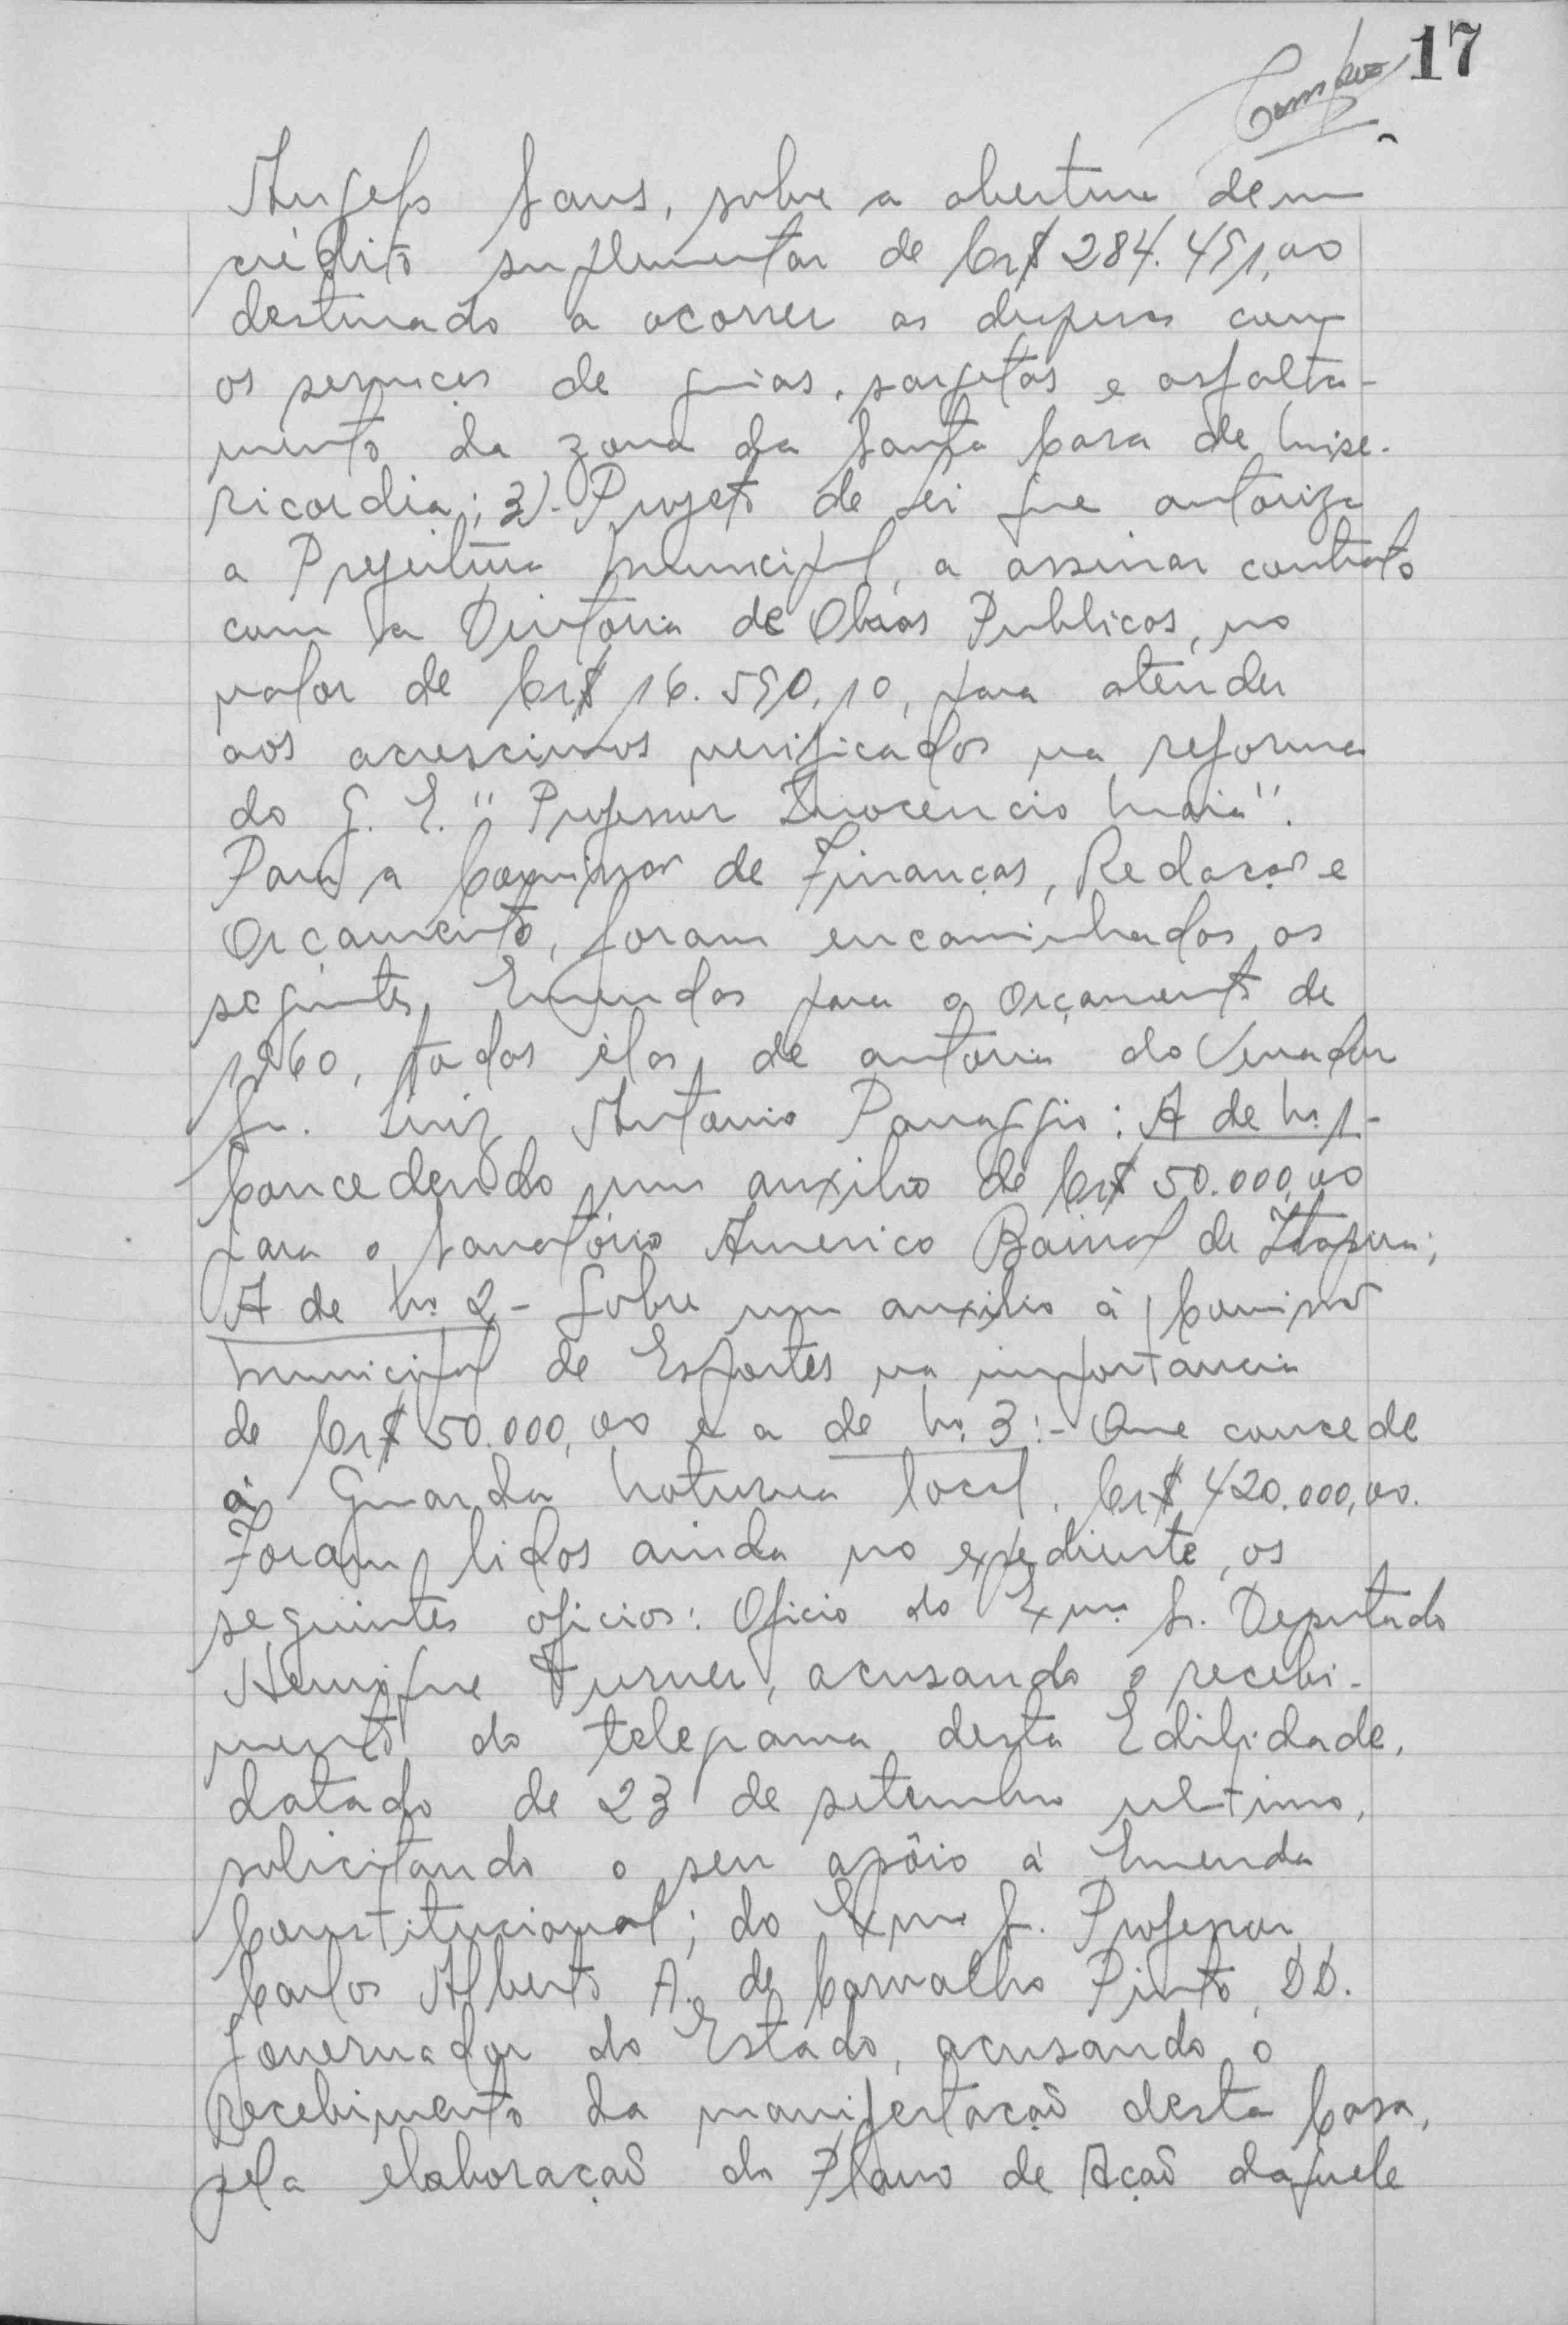 17
Angelo Sans, sobre a abertura de um
crédito suplementar de Cr$ 284.451,00
destinado a ocorrer as despesas com
os serviços de guias, sargetas e asfalta-
mento da zona da Santa Casa de Mise-
ricordia; 3)- Projeto de Lei que autoriza
a Prefeitura Municipal, a assinar contrato
com a Diretoria de Obras Publicas, no
valor de Cr$ 16.590,10, para atender
aos acrescimos verificados na reforma
do G. E. "Professor Inocencio Maia".
Para a Comissão de Finanças, Redação e
Orçamento, foram encaminhados as
seguintes Emendas para o Orçamento de
1960, todas elas, de autoria do Vereador
Sr. Luiz Antonio Panaggio: A de nº 1-
Concedendo um auxilio de Cr$ 50.000,00
para o Sanatório Americo Bairral de Itapira;
A de nº 2 - Sobre um auxilio á Comissão
Municipal de Esportes na importancia
de Cr$ 50.000,00 e a de nº 3:- Que concede
á Guarda Noturna local, Cr$ 420.000,00.
Foram lidos ainda no expediente, os
seguintes oficios: Oficio do Exmo Sr. Deputado
Henrique Turner, acusando o recebi-
mento do telegrama desta Edilidade,
datado de 23 de setembro ultimo,
solicitando o seu apôio á Emenda
Constitucional; do Exmo Sr. Professor
Carlos Alberto A. de Carvalho Pinto, DD.
Governador do Estado, acusando o
recebimento da manifestação desta Casa,
pela elaboração do Plano de Ação daquele